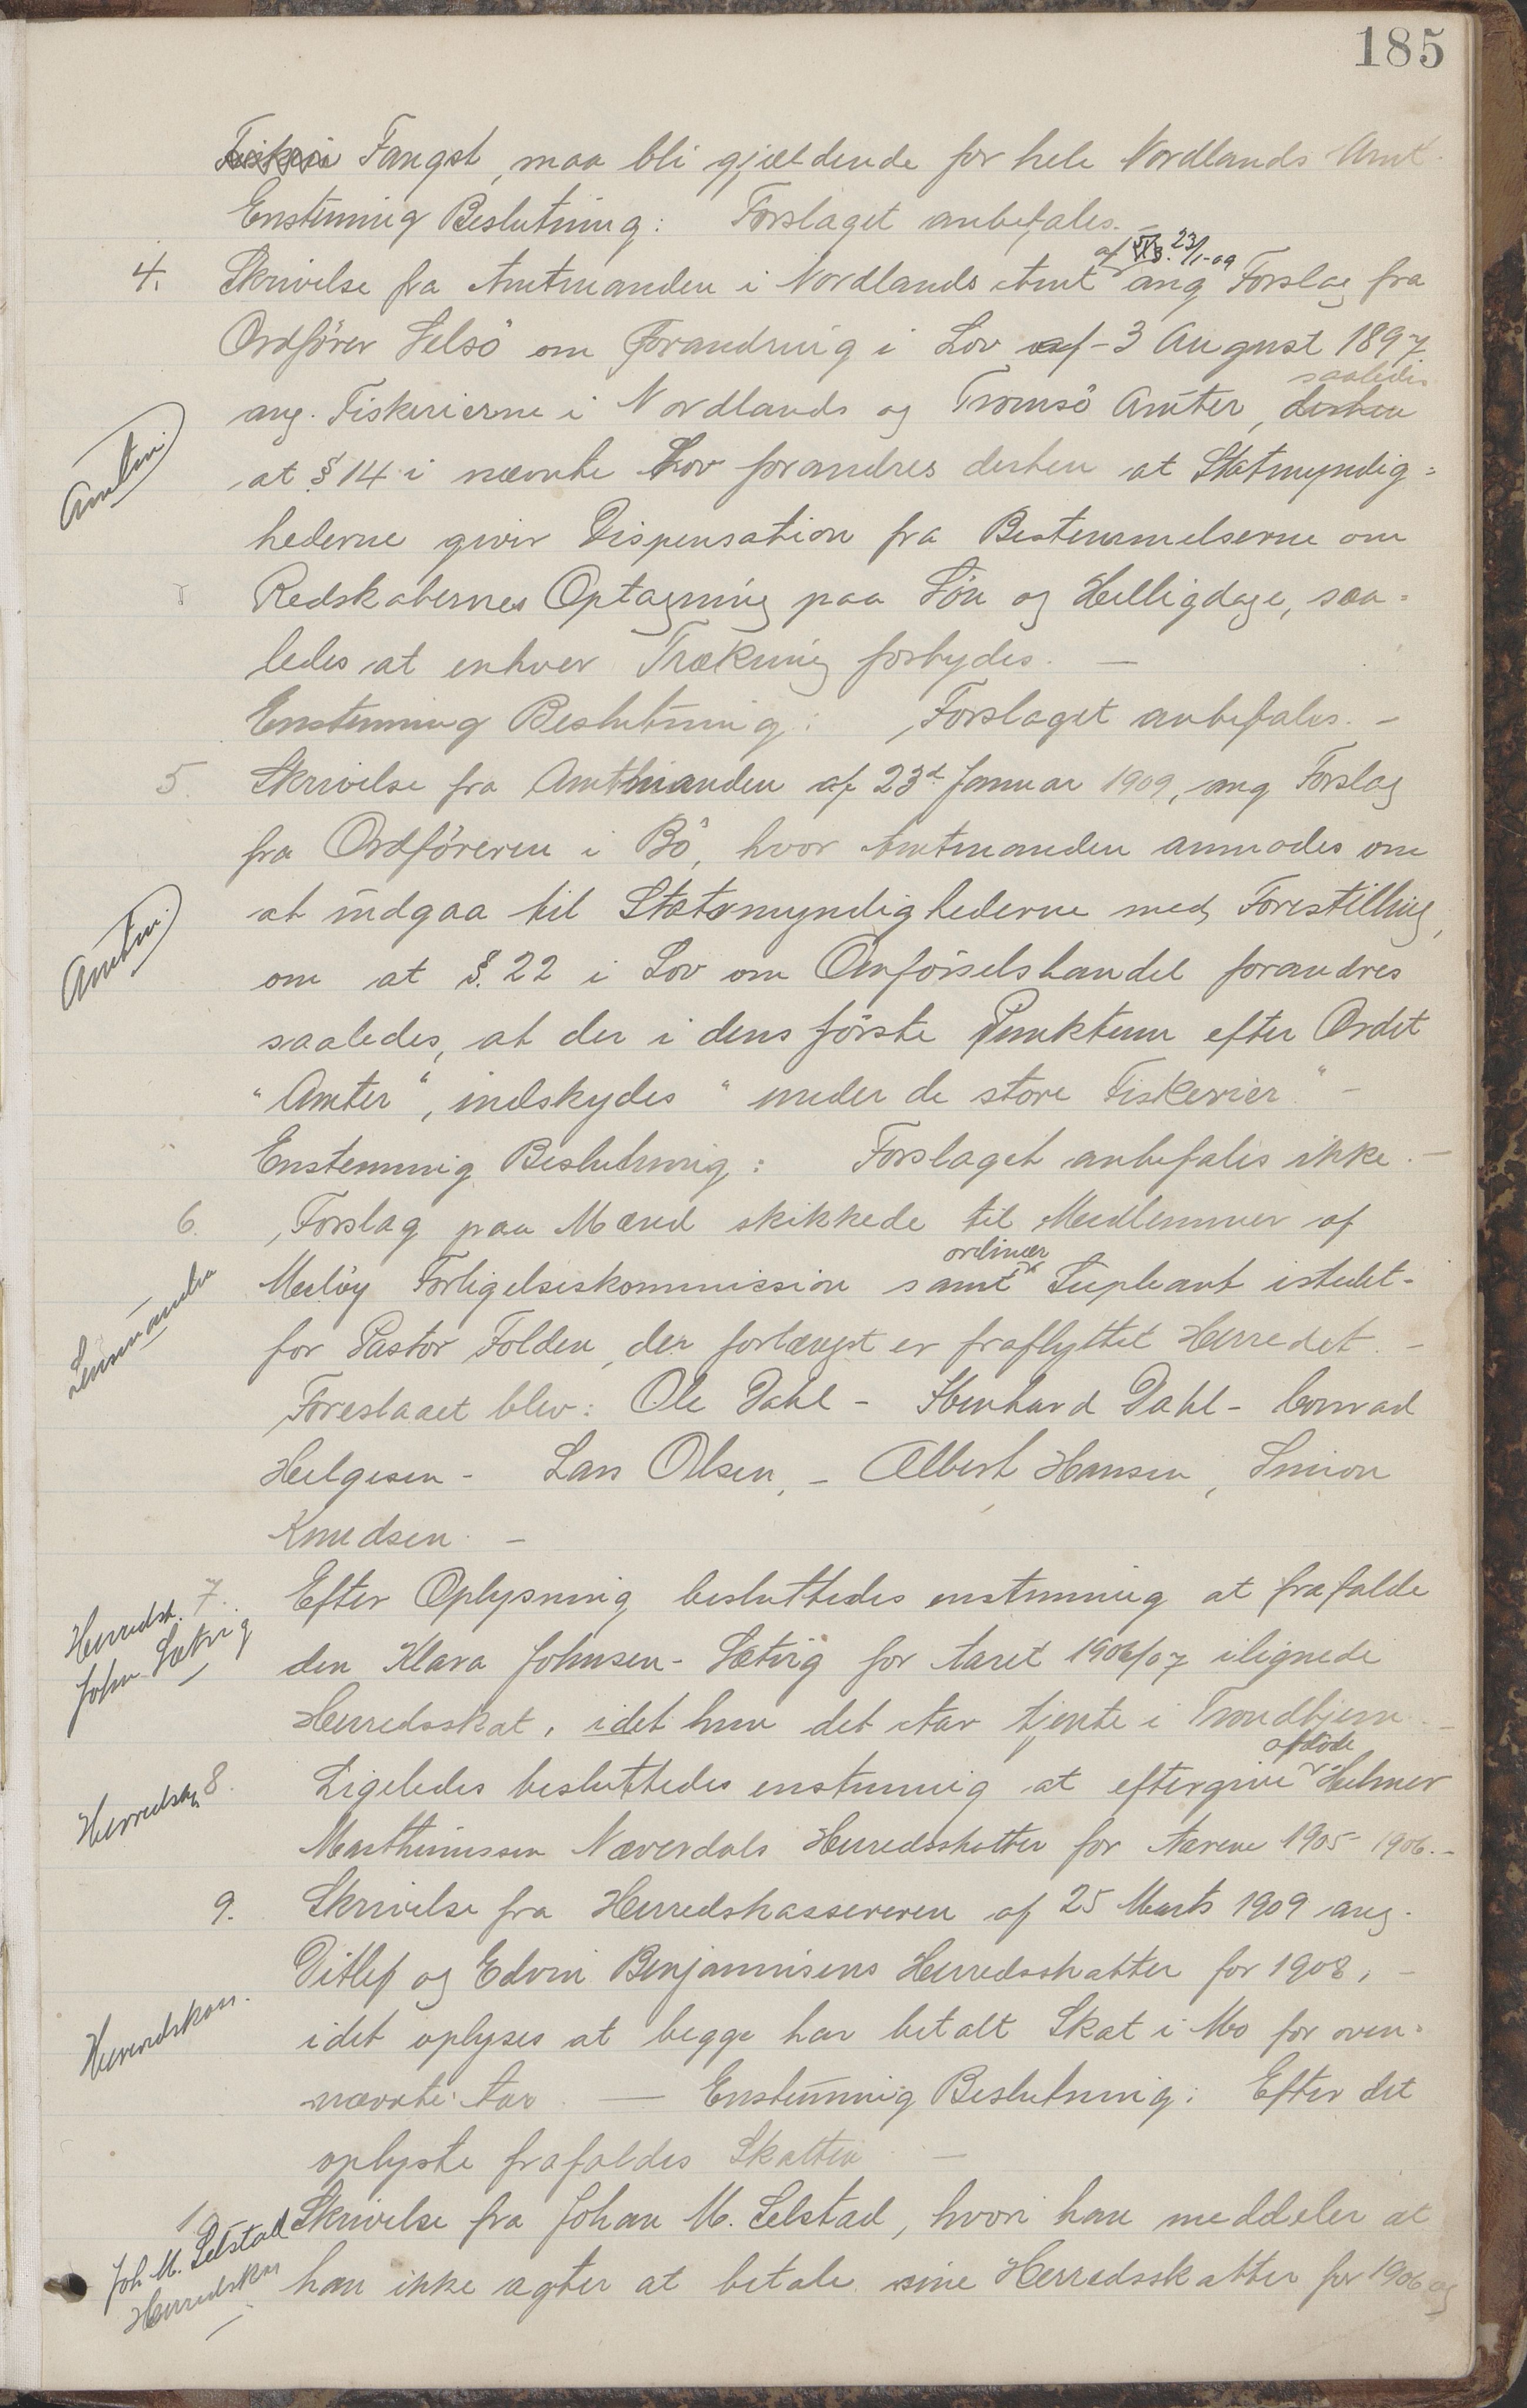 185
Fiskeri Fangst, maa bli gjældende for hele Nordlands Amt.
Enstemmig Beslutning: Forslaget anbefales. –
af 23/1-09
4. Skrivelse fra Amtmanden i Nordlands Amt ang Forslag fra
Ordförer Selsö om Forandring i Lov af 3 August 1897
saaledes
ang. Fiskerierne i Nordlands og Tromsö Amter, derhen
Amtm.
at § 14 i nævnte Lov forandres derhen at Statmyndig=
hederne giver Dispensation fra Bestemmelserne om
Redskabernes Optagning paa Sön og Helligdage, saa=
ledes at enhver Trækning forbydes. —
Enstemmig Beslutning: Forslaget anbefales. –
5. Skrivelse fra Amtmanden af 23d Januar 1909, ang Forslag
fra Ordföreren i Bö, hvor Amtmanden anmodes om
at indgaa til Statsmyndighederne med Forestilling,
Amtm.
om at §. 22 i Lov om Omförselshandel forandres
saaledes, at der i dens förste Punktum efter Ordet
"Amter", indskydes "under de store Fiskerier" –
Enstemmig Beslutning: Forslaget anbefales ikke. –
6. Forslag paa Mænd skikkede til Medlemmer af
ordinær
Meløy Forligelseskommission samt Supleant istedet-
Lensmanden
for Pastor Folden, der forlængst er fraflyttet Herredet. –
Foreslaaet blev: Ole Dahl – Edvard Dahl – Conrad
Helgesen – Lars Olsen, – Albert Hansen, Simon
Knudsen. –
7. Efter Oplysning besluttedes enstemmig at frafalde
Herredsk.
John. Sætvig
den Klara Johnsen – Sætvig for Aaret 1906/07 ilignede
Herredsskat, idet hun det Aar tjente i Trondhjem. –
afdöde
8. Ligeledes besluttedes enstemmig at eftergive Helmer
Herredsk.
Marthinussen Næverdals Herredsskatter for Aarene 1905 1906. –
9. Skrivelse fra Herredskassereren af 25 Marts 1909 ang.
Ditlef og Edvin Benjaminsens Herredsskatter for 1908, –
Herredskass.
idet oplyses at begge har betalt Skat i Mo for oven-
nævnte Aar. — Enstemmig Beslutning: Efter det
oplyste frafaldes Skatten. —
10 Skrivelse fra Johan M. Selstad, hvori han meddeler at
Joh. M. Selstad
Herredskas
han ikke agter at betale sine Herredsskatter for 1906 og